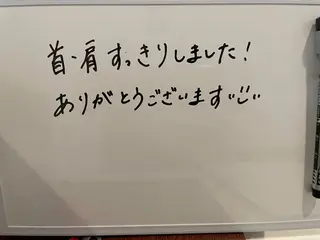 首・肩すっきりしました!
ありがとうございます